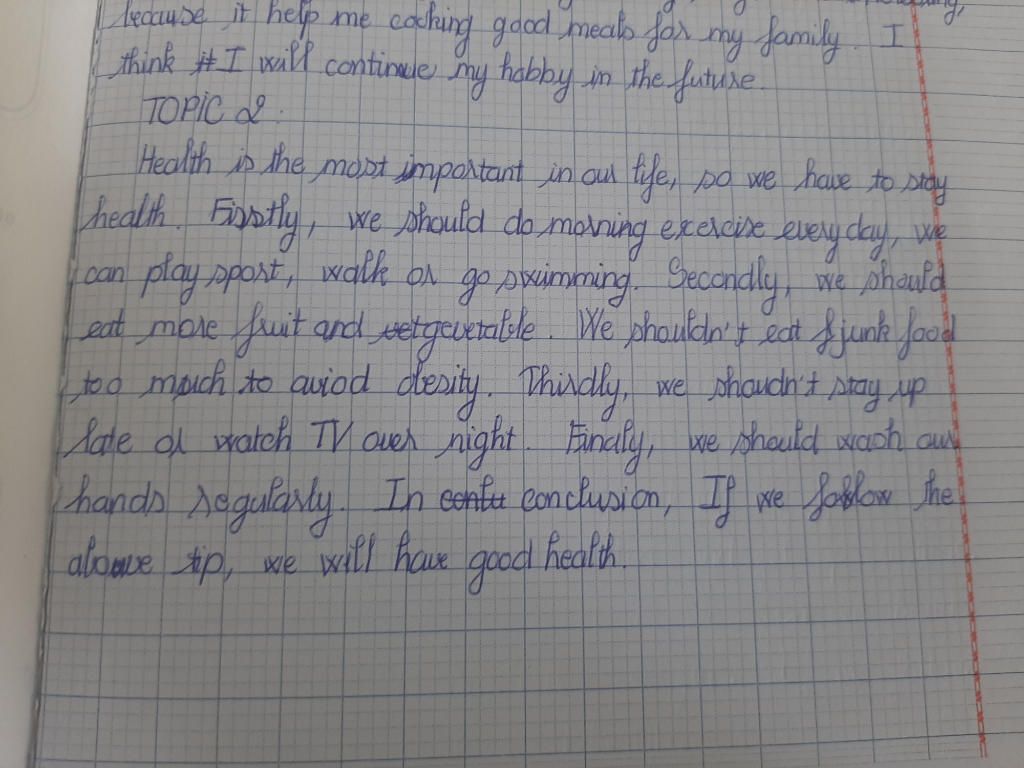 because it help me cooking good meals for my family. I
think I will continue my hobby in the future.
TOPIC 2:
Health is the most important in our life, so we have to stay
health. Firstly, we should do morning exercise everyday, we
can play sport, walk or go swimming. Secondly, we should
eat more fruit and vegetable. We shouldn't eat junk food
too much to aviod obesity. Thirdly, we shoudn't stay up
late or watch TV over night. Finaly, we should wash our
hands regularly. In conclusion, If we follow the
above tip, we will have good health.